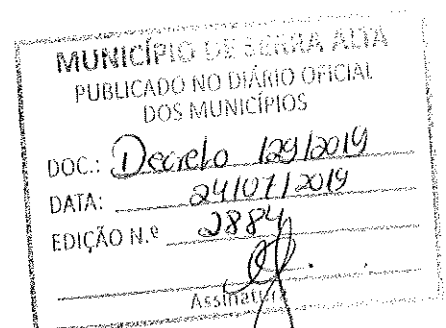 MUNICÍPIO DE SERRA ALTA
PUBLICADO NO DIÁRIO OFICIAL
DOS MUNICÍPIOS
DOC.: Decreto 129/2019
DATA: 24/07/2019
EDIÇÃO N.º 2884
Assinatura